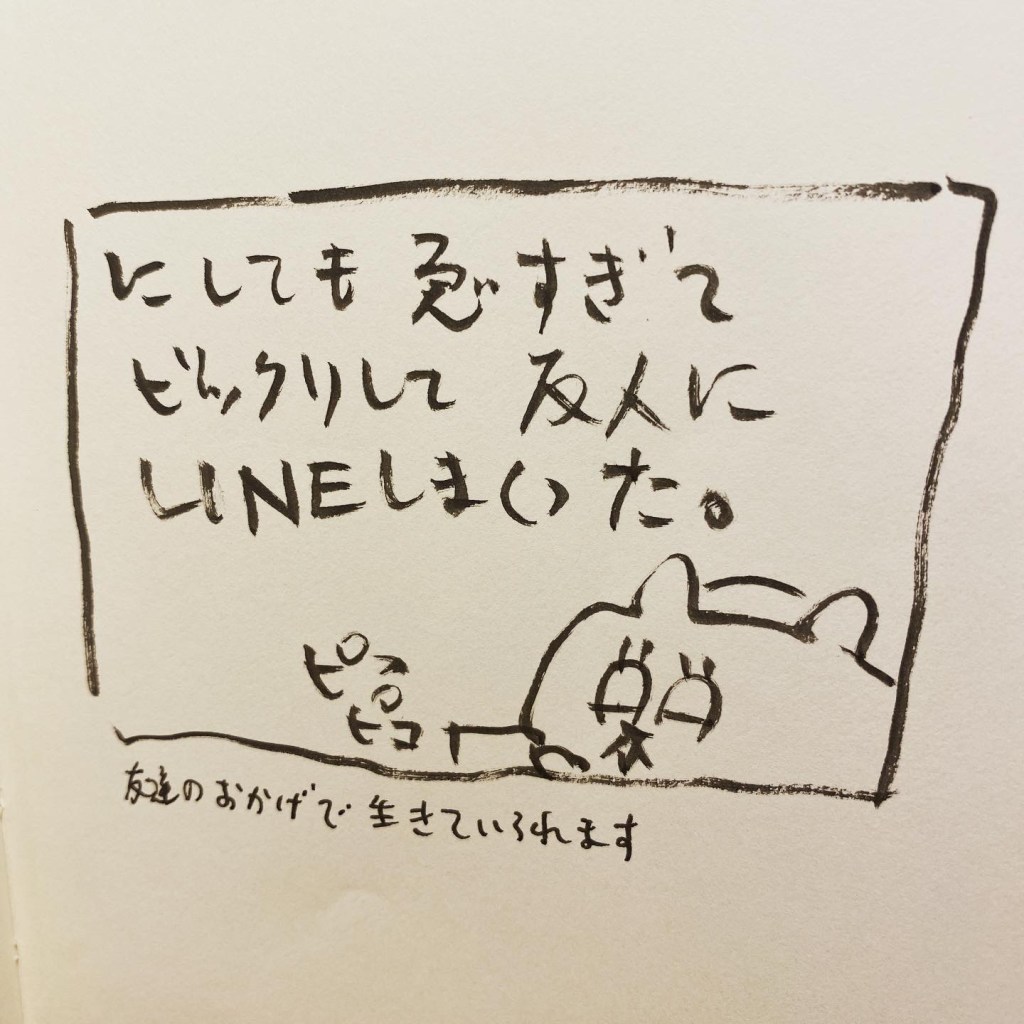 にしても急すぎて
ビックリして友人に
LINEしまいた。
ピコ
ピコ
友達のおかげで生きていられます